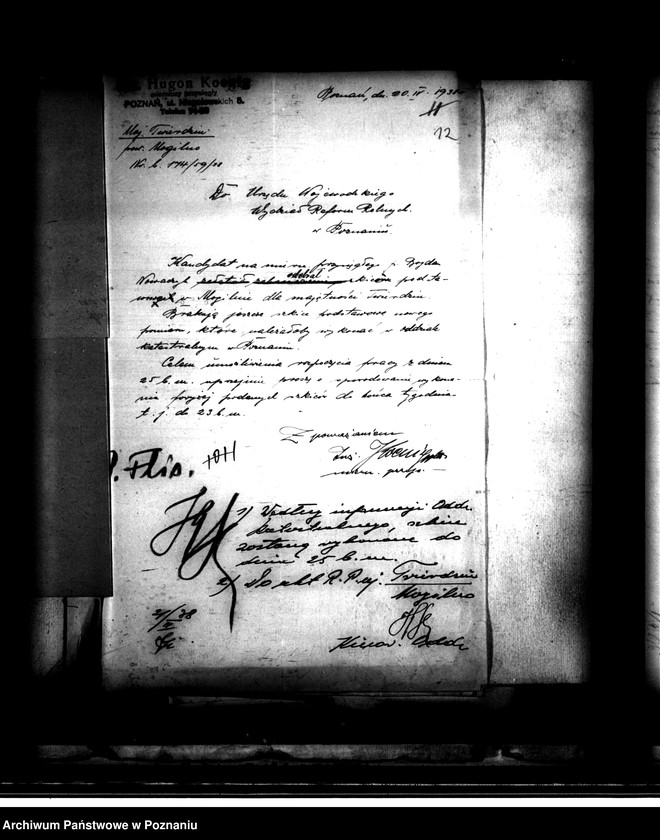 Hugon Koenig
mierniczy przysięgły
POZNAŃ, ul.
Telefon
Poznań, dn. 20 IV. 193
11
12
Maj. Twierdziń
pow. Mogilno
Nr. b. 174/59/38
Do Urzędu Wojewódzkiego
Wydział Reform Rolnych.
w Poznaniu
Kandydat na miern. przysięgłego p. Bojda
Nowaczyk odebrał szkiców podsta-
wowych w Mogilnie dla majętności Twierdziń
Brakują jeszcze szkice podstawowe nowego
pomiaru, które należałoby wykonać w oddziale
katastralnym w Poznaniu.
Celem umożliwienia rozpoczęcia pracy z dniem
25 b. m. uprzejmie proszę o spowodowanie wykona-
nia powyżej podanych szkiców do końca tygodnia
t. j. do 23 b. m.
Z poważaniem
Inż. Koenig
miern. przys.
P. Flis.
1) Według informacji Oddz.
Katastralnego, szkice
zostaną wykonane do
dnia 25 b. m.
2) Do akt R. P. maj. Twierdziń
Mogilno
21/IV 38
Kierow. Oddz.
Archiwum Państwowe w Poznaniu